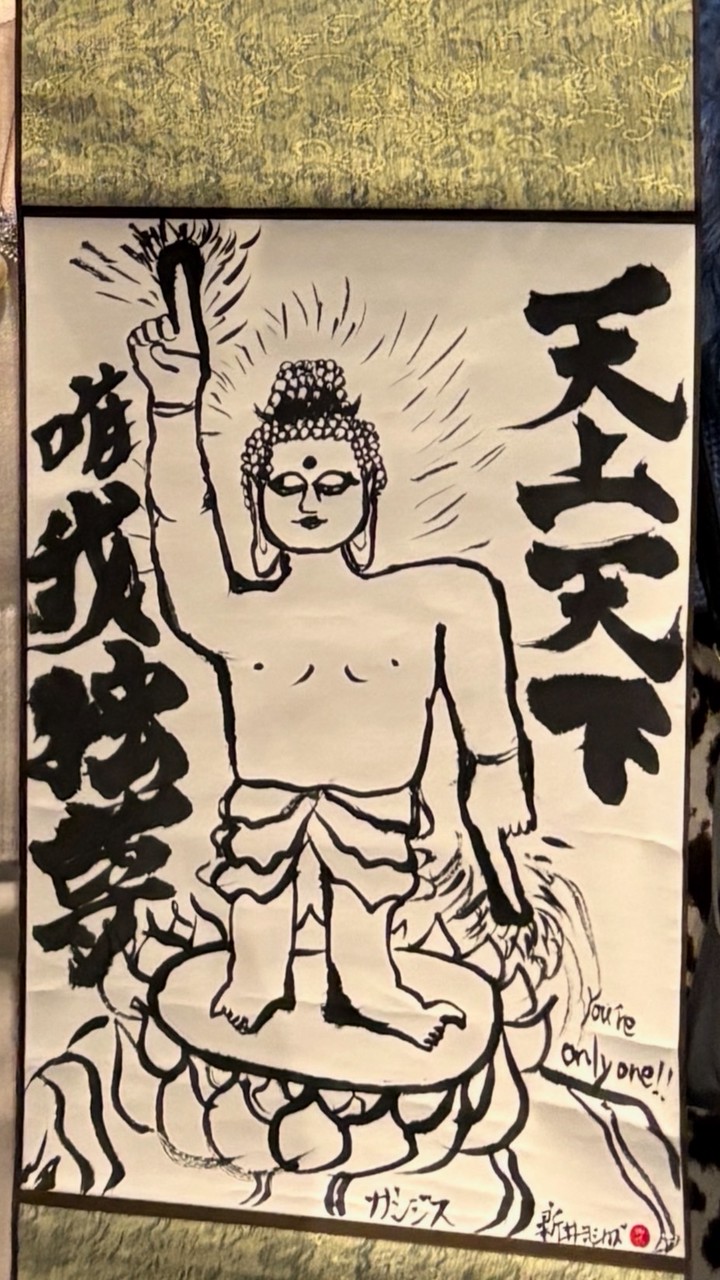 天上天下
唯我独尊
You're
only one!!
ガンジス
新井ヨシカズ